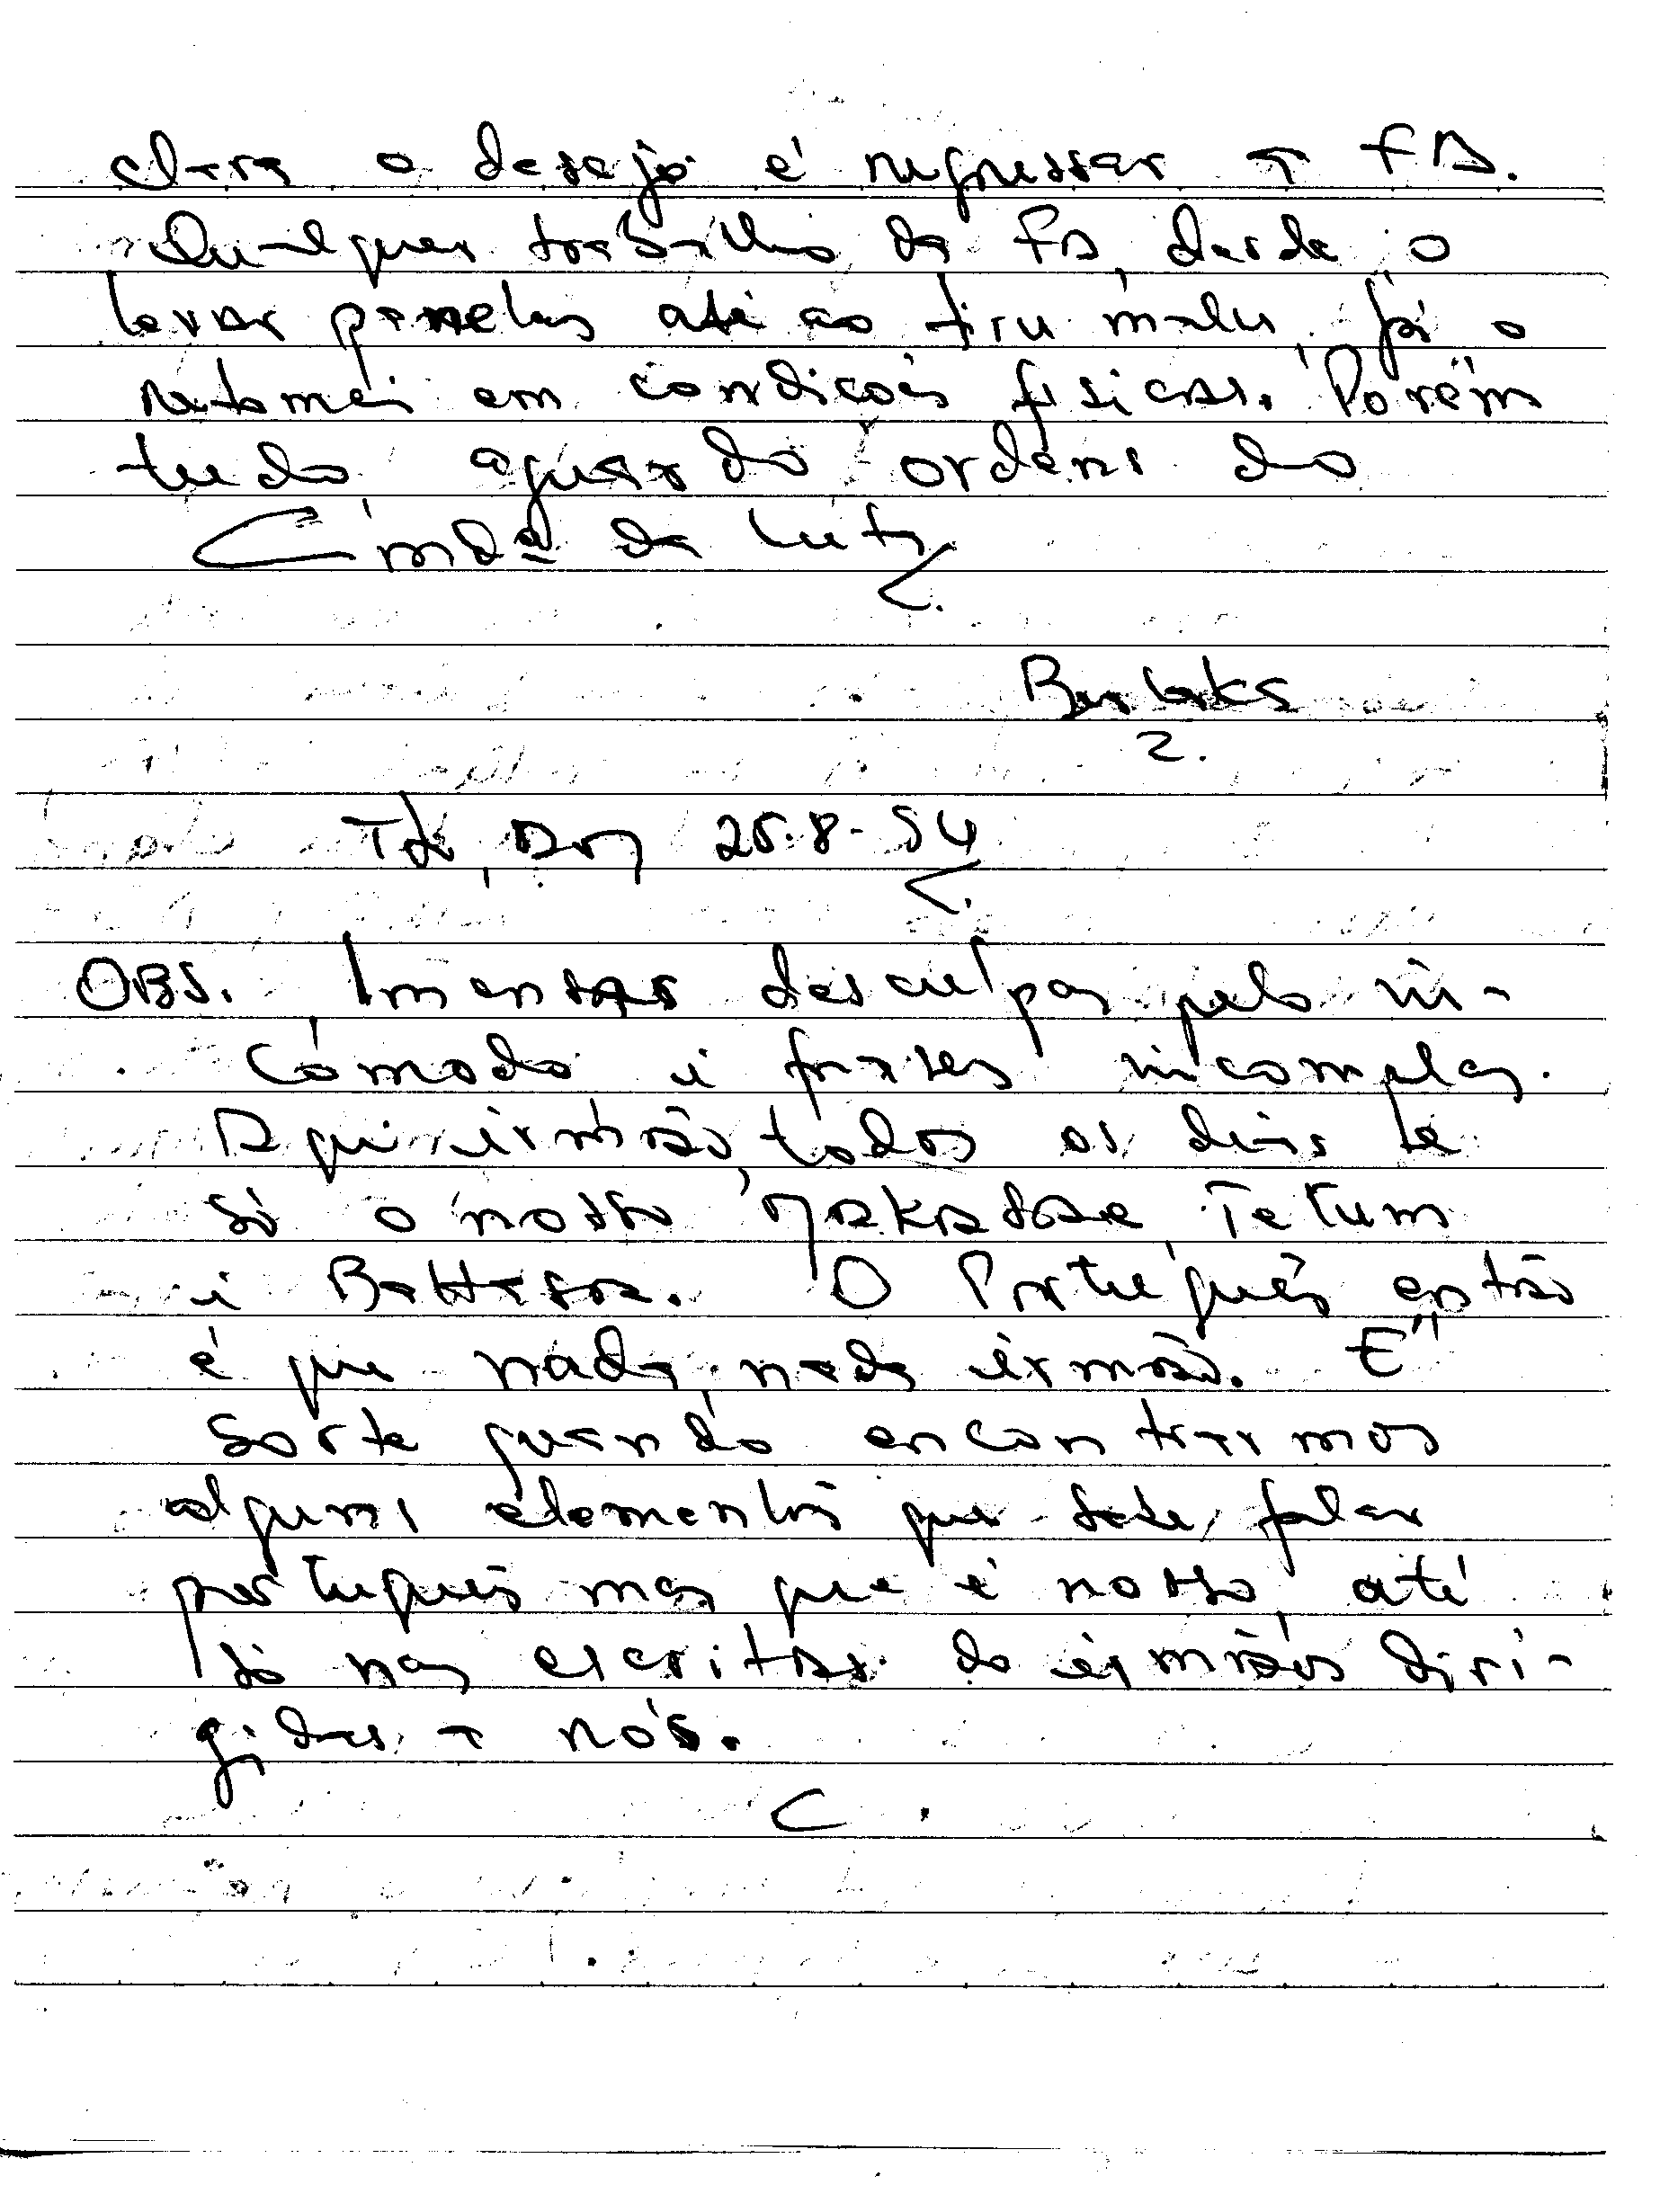 clara o desejo é regressar a FA.
Qualquer trabalho da FA, desde o
levar panelas até ao tiru malu, já o
retomei em condições fisicas. Porém
tudo, aguardo ordens do
Cmdº da Luta
2.
OBS. Imensas desculpas pelo in-
cómodo i frases incomplas.
Aqui irmão, todos os dias é
só o nosso Makasae, Tetum
i Bahasa. O Português então
é que nada, nada irmão. É
sorte quando encontrarmos
alguns elementos que sabe falar
português mas que é nosso, até
só nas escritas do irmãos diri-
gidas a nós.